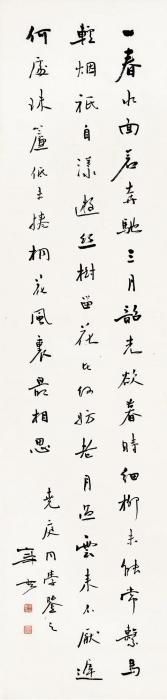 一春水面若奔馳三月韶光欲暮時細柳未能常繫馬
輕烟祇自漾遊絲樹留花比何妨老月過雲來不厭遲
何處珠簾低未捲桐花風裏最相思
堯庭同學鑒之